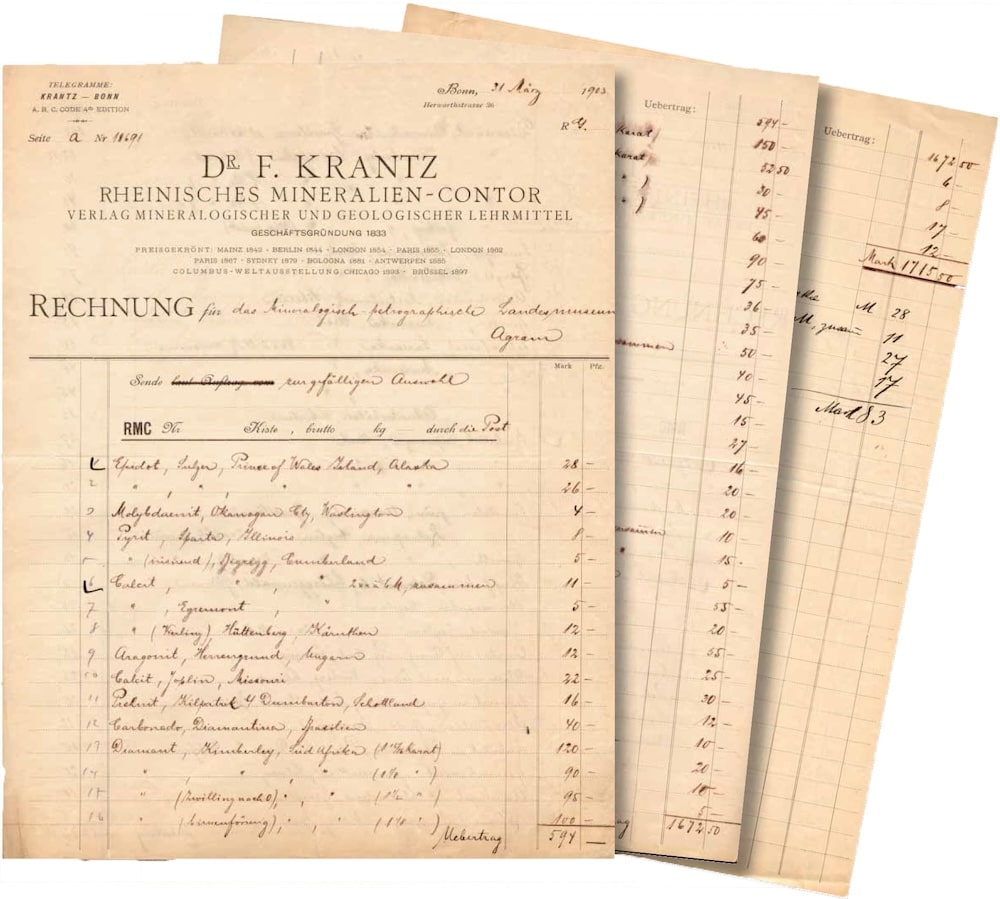 TELEGRAMME:
KRANTZ — BONN
A. B. C. CODE 4th EDITION
Seite a Nr 18691
Bonn, 31 März 1903
Herwarthstrasse 36
DR. F. KRANTZ
RHEINISCHES MINERALIEN-CONTOR
VERLAG MINERALOGISCHER UND GEOLOGISCHER LEHRMITTEL
GESCHÄFTSGRÜNDUNG 1833
PREISGEKRÖNT: MAINZ 1842 · BERLIN 1844 · LONDON 1854 · PARIS 1855 · LONDON 1862
PARIS 1867 · SYDNEY 1879 · BOLOGNA 1881 · ANTWERPEN 1885
COLUMBUS-WELTAUSSTELLUNG CHICAGO 1893 · BRÜSSEL 1897
RECHNUNG für das Mineralogisch-petrographische Landesmuseum
Agram
Mark Pfg.
Sende laut Auftrag vom zur gefälligen Auswahl
RMC Nr Kiste, brutto kg durch die Post
1 Epidot, Sulzer, Prince of Wales Island, Alaska 28 —
2 " , " , " " 26 —
3 Molybdaenit, Okanogan Cty, Washington 4 —
4 Pyrit, Sparta, Illinois 8 —
5 " (irisirend), Cumberland 5 —
6 Calcit, " , " 2 zusammen 11 —
7 " , Egremont, " 5 —
8 " Hüttenberg, Kärnthen 12 —
9 Aragonit, Herrengrund, Ungarn 12 —
10 Calcit, Joplin, Missouri 22 —
11 Prehnit, Kilpatrick Dumbarton, Schottland 16 —
12 Carbonado, Diamantina, Brasilien 40 —
13 Diamant, Kimberley, Süd Afrika karat) 120 —
14 " , " , " " ) 90 —
15 " (Zwilling nach O), " , " " ) 95 —
16 " (birnenförmig), " , " " ) 100 —
Uebertrag 594 —
Uebertrag:
karat) 594 —
karat) 150 —
52 50
30 —
45 —
60 —
90 —
75 —
36 —
35 —
zusammen 50 —
40 —
45 —
15 —
27 —
16 —
20 —
20 —
zusammen 10 —
15 —
5 —
55 —
20 —
55 —
25 —
30 —
12 —
10 —
20 —
10 —
5 —
1672 50
Uebertrag:
1672 50
6 —
8 —
17 —
12 —
Mark 1715 50
M 28
M, zusam 11
27
17
Mark 83